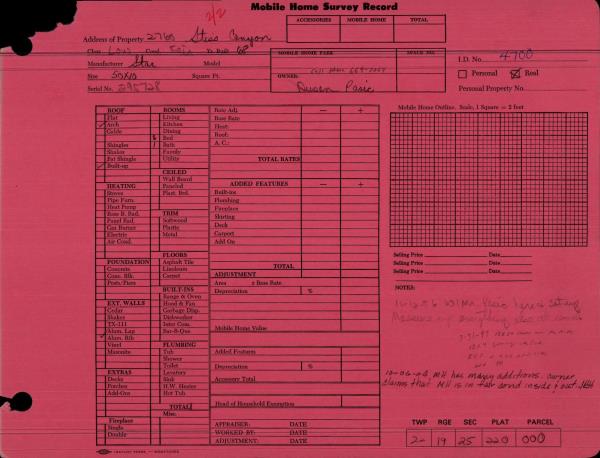 2/2
Mobile Home Survey Record
ACCESSORIES MOBILE HOME TOTAL
Address of Property 2760 Canyon
Class Low Cond. Fair Yr. Built 68
MOBILE HOME PARK SPACE NO.
Manufacturer Star Model
I.D. No. 4700
Size 50X10 Square Ft.
OWNER:
Personal Real
Serial No.
Personal Property No.
ROOF
Flat
Arch
Gable
Shingles
Shakes
Pat Shingle
Built-up
HEATING
Stoves
Pipe Furn.
Heat Pump
Base B. Rad.
Panel Rad.
Gas Burner
Electric
Air Cond.
FOUNDATION
Concrete
Conc. Blk.
Posts/Piers
EXT. WALLS
Cedar
Shakes
TX-111
Alum. Lap
Alum. Rib
Vinyl
Masonite
EXTRAS
Decks
Porches
Add-Ons
Fireplace
Single
Double
ROOMS
Living
Kitchen
Dining
Bed
Bath
Family
Utility
CEILED
Wall Board
Paneled
Plast. Bed.
TRIM
Softwood
Plastic
Metal
FLOORS
Asphalt Tile
Linoleum
Carpet
BUILT-INS
Range & Oven
Hood & Fan
Garbage Disp.
Dishwasher
Inter Com.
Bar-B-Que
PLUMBING
Tub
Shower
Toilet
Lavatory
Sink
H.W. Heater
Hot Tub
TOTAL
Misc.
Rate Adj. — +
Base Rate
Heat:
Roof:
A. C.:
TOTAL RATES
ADDED FEATURES — +
Built-ins
Plumbing
Fireplace
Skirting
Deck
Carport
Add On
TOTAL
ADJUSTMENT
Area x Base Rate
Depreciation %
Mobile Home Value
Added Features
Depreciation %
Accessory Total
Head of Household Exemption
APPRAISER: DATE
WORKED BY: DATE
ADJUSTMENT: DATE
Mobile Home Outline. Scale, 1 Square = 2 feet
Selling Price Date
Selling Price Date
Selling Price Date
NOTES:
10-06-93, MH has many additions. owner
claims that MH is in fair cond inside & out.
TWP RGE SEC PLAT PARCEL
2- 19 25 220 000